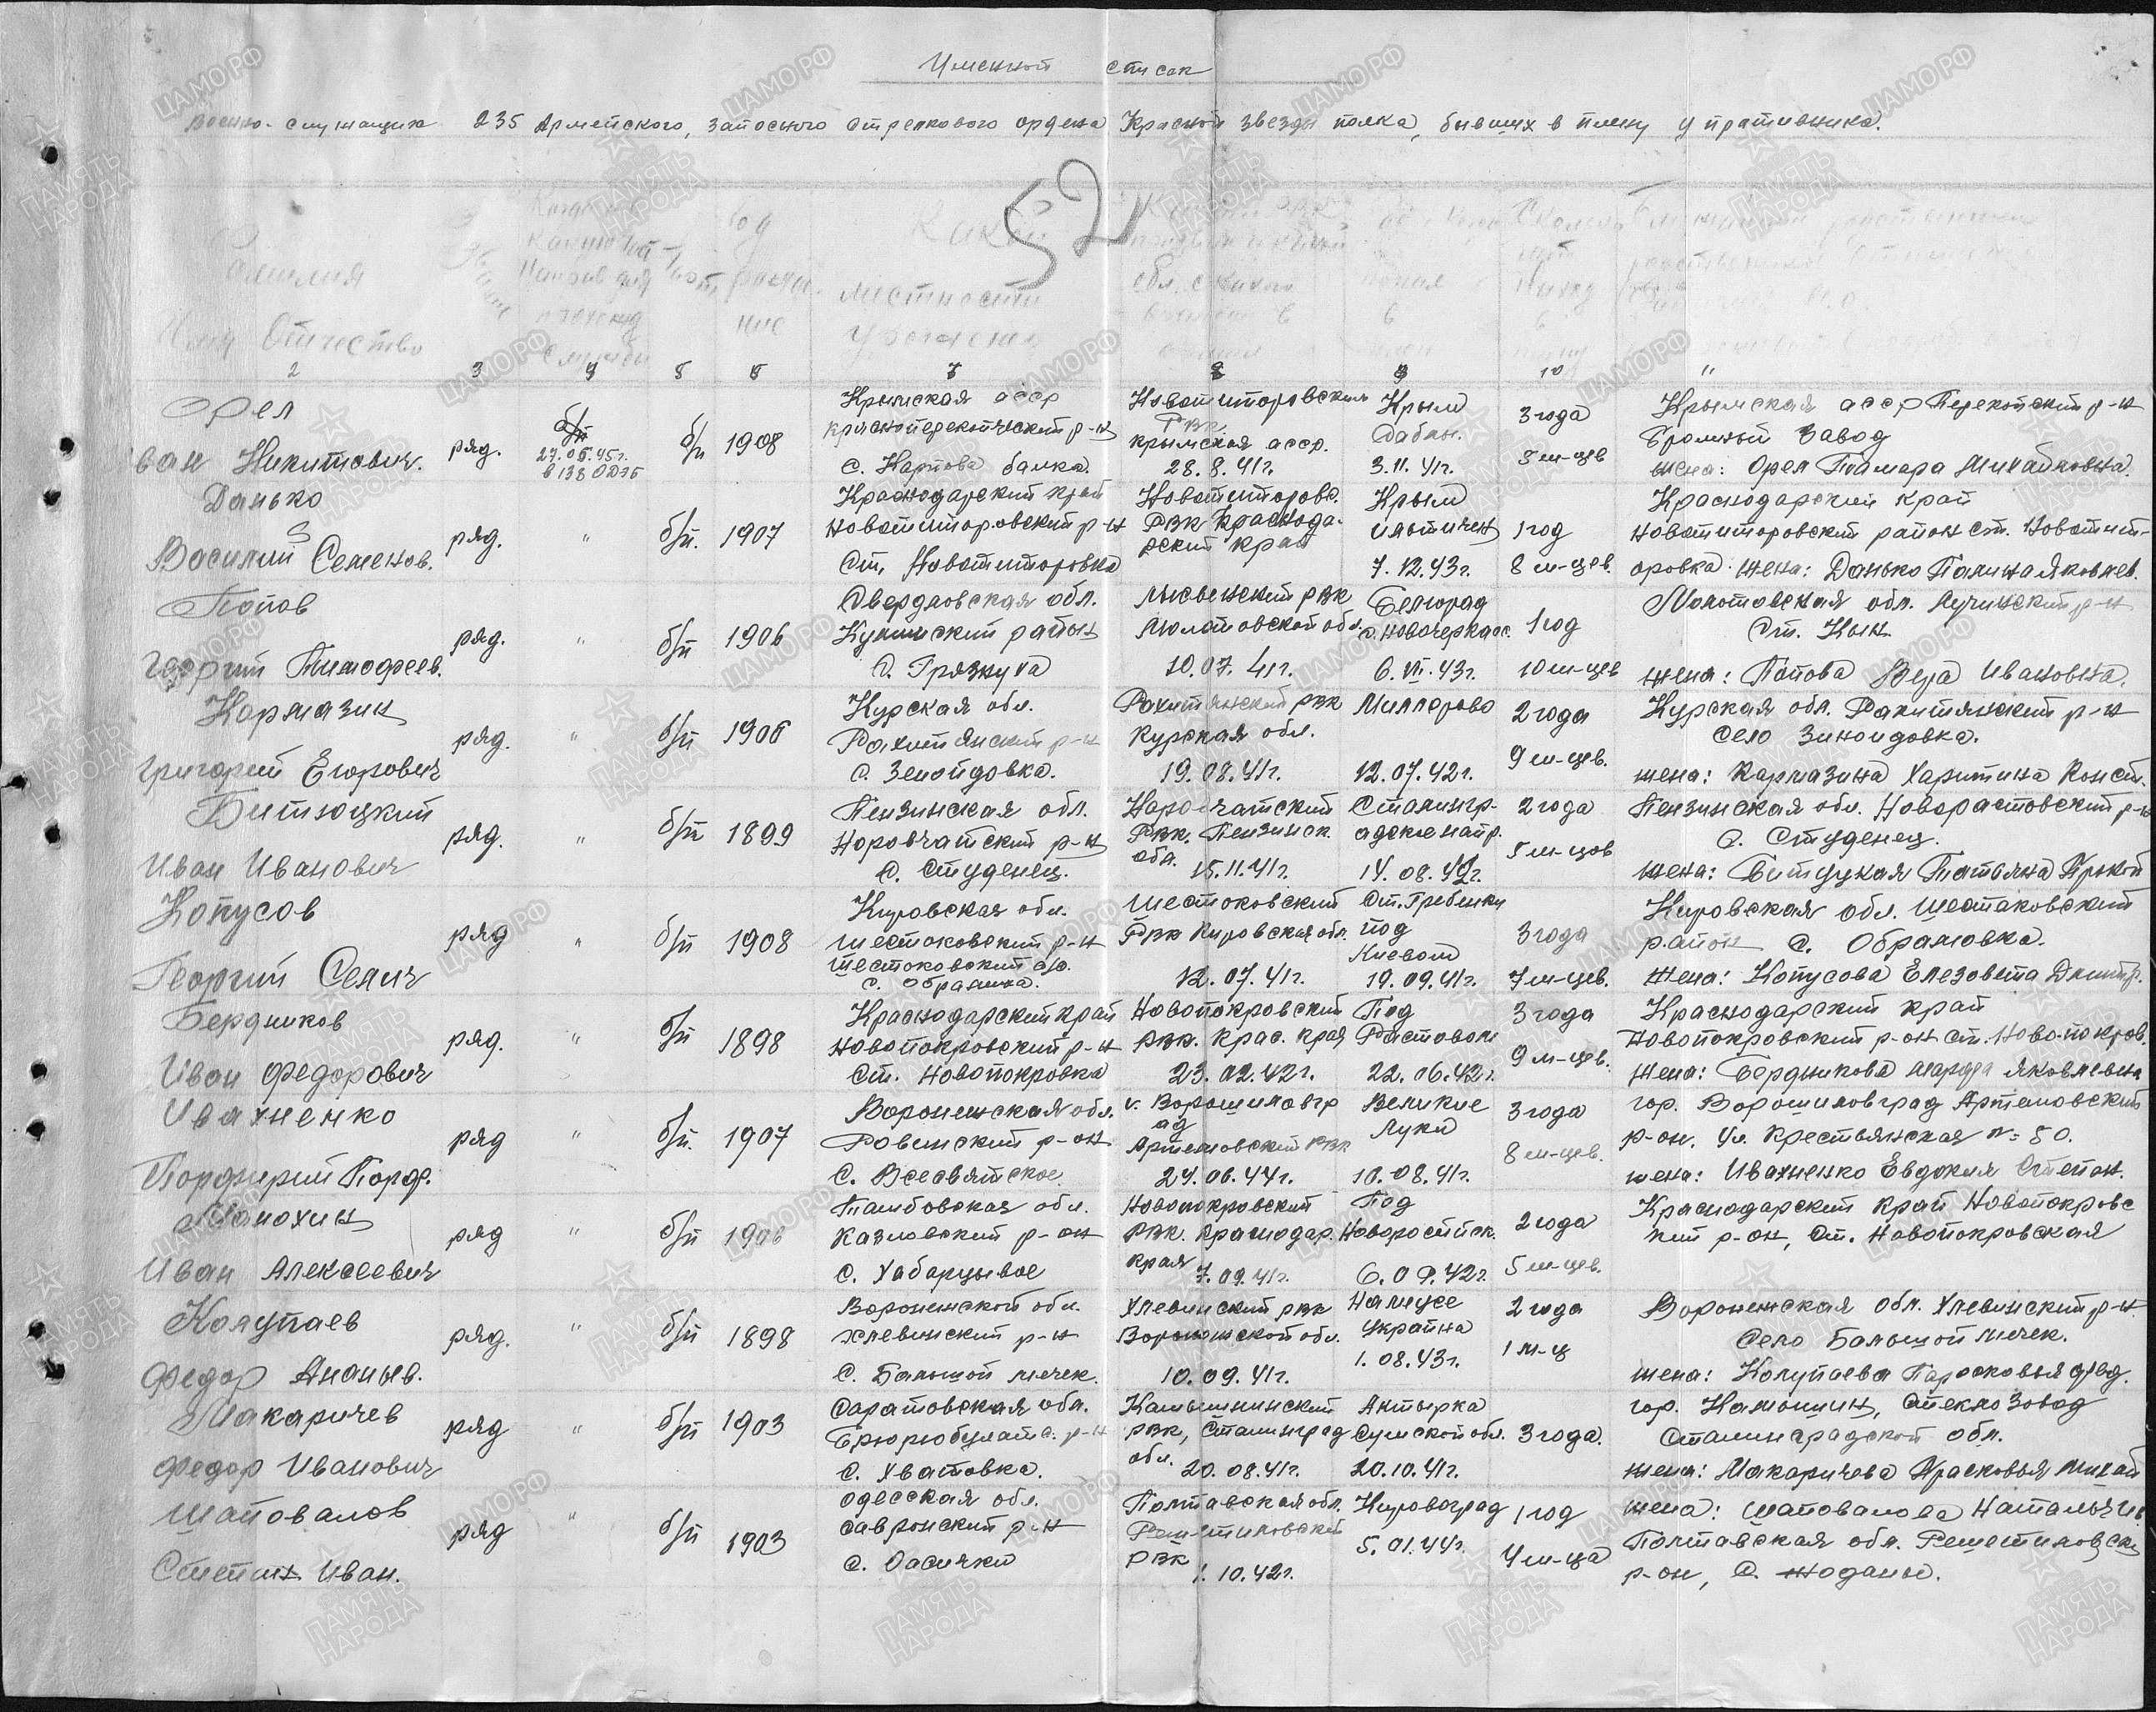 Именной список
военно-служащих 235 Армейского, запасного стрелкового ордена Красной звезды полка, бывших в плену у противника.
52
Фамилия
Имя Отчество
Год рожд. ние
Какой местности уроженец
2 3 4 5 6 7 8 9 10 11
Орел
ван Никитович.
ряд.
27.05.45г.
в 138 ОДЭБ
б/п
1908
Крымская асср
красноперекопческий р-н
с. Карпова балка.
Новотиторовским
РВК
крымская асср.
28.8.41г.
Крым
3.11.41г.
3 года
5 м-цев
Крымская асср Перекопский р-н
Бромный завод
жена: Орел Тамара Михайловна.
Данько
Василий Семенов.
ряд.
"
б/п.
1907
Краснодарский край
Новотиторовский р-н
Ст. Новотиторовка
Новотиторовс.
РВК Краснода-
рский край
Крым
7.12.43г.
1 год
8 м-цев.
Краснодарский край
Новотиторовский район ст. Новотит-
оровка. жена: Данько Галина Яковлев.
Попов
Георгий Тимофеев.
ряд.
"
б/п
1906
Свердловская обл.
район
с. Грязнуха
Лысьвенский рвк
Молотовской обл.
10.07.41г.
Белгород
с. Новочеркасс.
6.VII.43г.
1 год
10 м-цев
Молотовская обл. р-н
Ст. Кын
жена: Попова Вера Ивановна.
Кармазин
Григорий Егорович
ряд.
"
б/п
1906
Курская обл.
Ракитянский р-н
с. Зенойдовка.
Ракитянский рвк
Курская обл.
19.08.41г.
Миллерово
12.07.42г.
2 года
9 м-цев.
Курская обл. Ракитянский р-н
Село Зиноидовка.
жена: Кармазина Харитина Конст.
Битюцкий
Иван Иванович
ряд.
"
б/п
1899
Пензинская обл.
Норовчатский р-н
с. Студенец.
Наровчатский
РВК. Пензинск.
обл.
15.11.41г.
Сталингр-
адское напр.
14.08.42г.
2 года
5 м-цов
Пензинская обл. р-н
с. Студенец.
жена: Битуцкая Татьяна Прокоп
Копусов
Георгий Селич
ряд
"
б/п
1908
Кировская обл.
Шестоковский р-н
Шестоковский с/с.
с. Обрамика.
Шестоковский
РВК Кировская обл.
12.07.41г.
Ст. Гребенку
под
Киевом
19.09.41г.
3 года
7 м-цев.
Кировская обл. Шестаковский
район с. Обрамовка.
Жена: Копусова Елезовета Дмитр.
Бердников
Иван Федорович
ряд.
"
б/п
1898
Краснодарский край
Новопокровский р-н
Ст. Новопокровка
Новопокровский
РВК. Крас. края
23.02.42г.
Под
Растовом
22.06.42г.
3 года
9 м-цев.
Краснодарский край
Новопокровский р-он ст. Ново-покров.
Жена: Бердникова Марфа Яковлевна
Ивахненко
Порфирий Порф.
ряд
"
б/п.
1907
Воронежская обл.
Ровенский р-он
с. Всесвятское.
г. Ворошиловгр
ад
Артемовский РВК
24.06.44г.
Великие
Луки
10.08.41г.
3 года
8 м-цев.
гор. Ворошиловград Артемовский
р-он. Ул. Крестьянская №=50.
жена: Ивахненко Евдокия Степон.
Манохин
Иван Алексеевич
ряд
"
б/п
1906
Тамбовская обл.
Казловский р-он
с. Хабарцывое
Новопокровский
РВК. Краснодар.
края
7.09.41г.
Под
Новоросийск.
6.09.42г.
2 года
5 м-цев.
Краснодарский край Новопокровс
кий р-он, ст. Новопокровская
Колупаев
Федор Ананьев.
ряд.
"
б/п
1898
Воронежской обл.
Хлевинский р-н
с. Балышой мечек.
Хлевинский рвк
Воронежской обл.
10.09.41г.
Украйна
1.08.43г.
2 года
1 м-ц
Воронежская обл. Хлевинский р-н.
Село Балышой мечек.
жена: Колупаева Парасковья Фед.
Макаричев
Федор Иванович
ряд
"
б/п
1903
Саратовская обл.
р-н
с. Хватовка.
Камышинский
РВК, Сталинград
обл.
20.08.41г.
Ахтырка
Сумской обл.
20.10.41г.
3 года.
гор. Камышин, Стекло Завод
Сталинградской обл.
жена: Макаричева Прасковья Михай
Шаповалов
Степан Иван.
ряд
"
б/п
1903
Одесская обл.
Савронский р-н
с. Осички
Полтавская обл.
Решетиловский
РВК
1.10.42г.
Кировоград
5.01.44г.
1 год
4 м-ца
жена: Шаповалова Наталья Ив
Полтавская обл. Решетиловски
р-он, с. Жоданы.